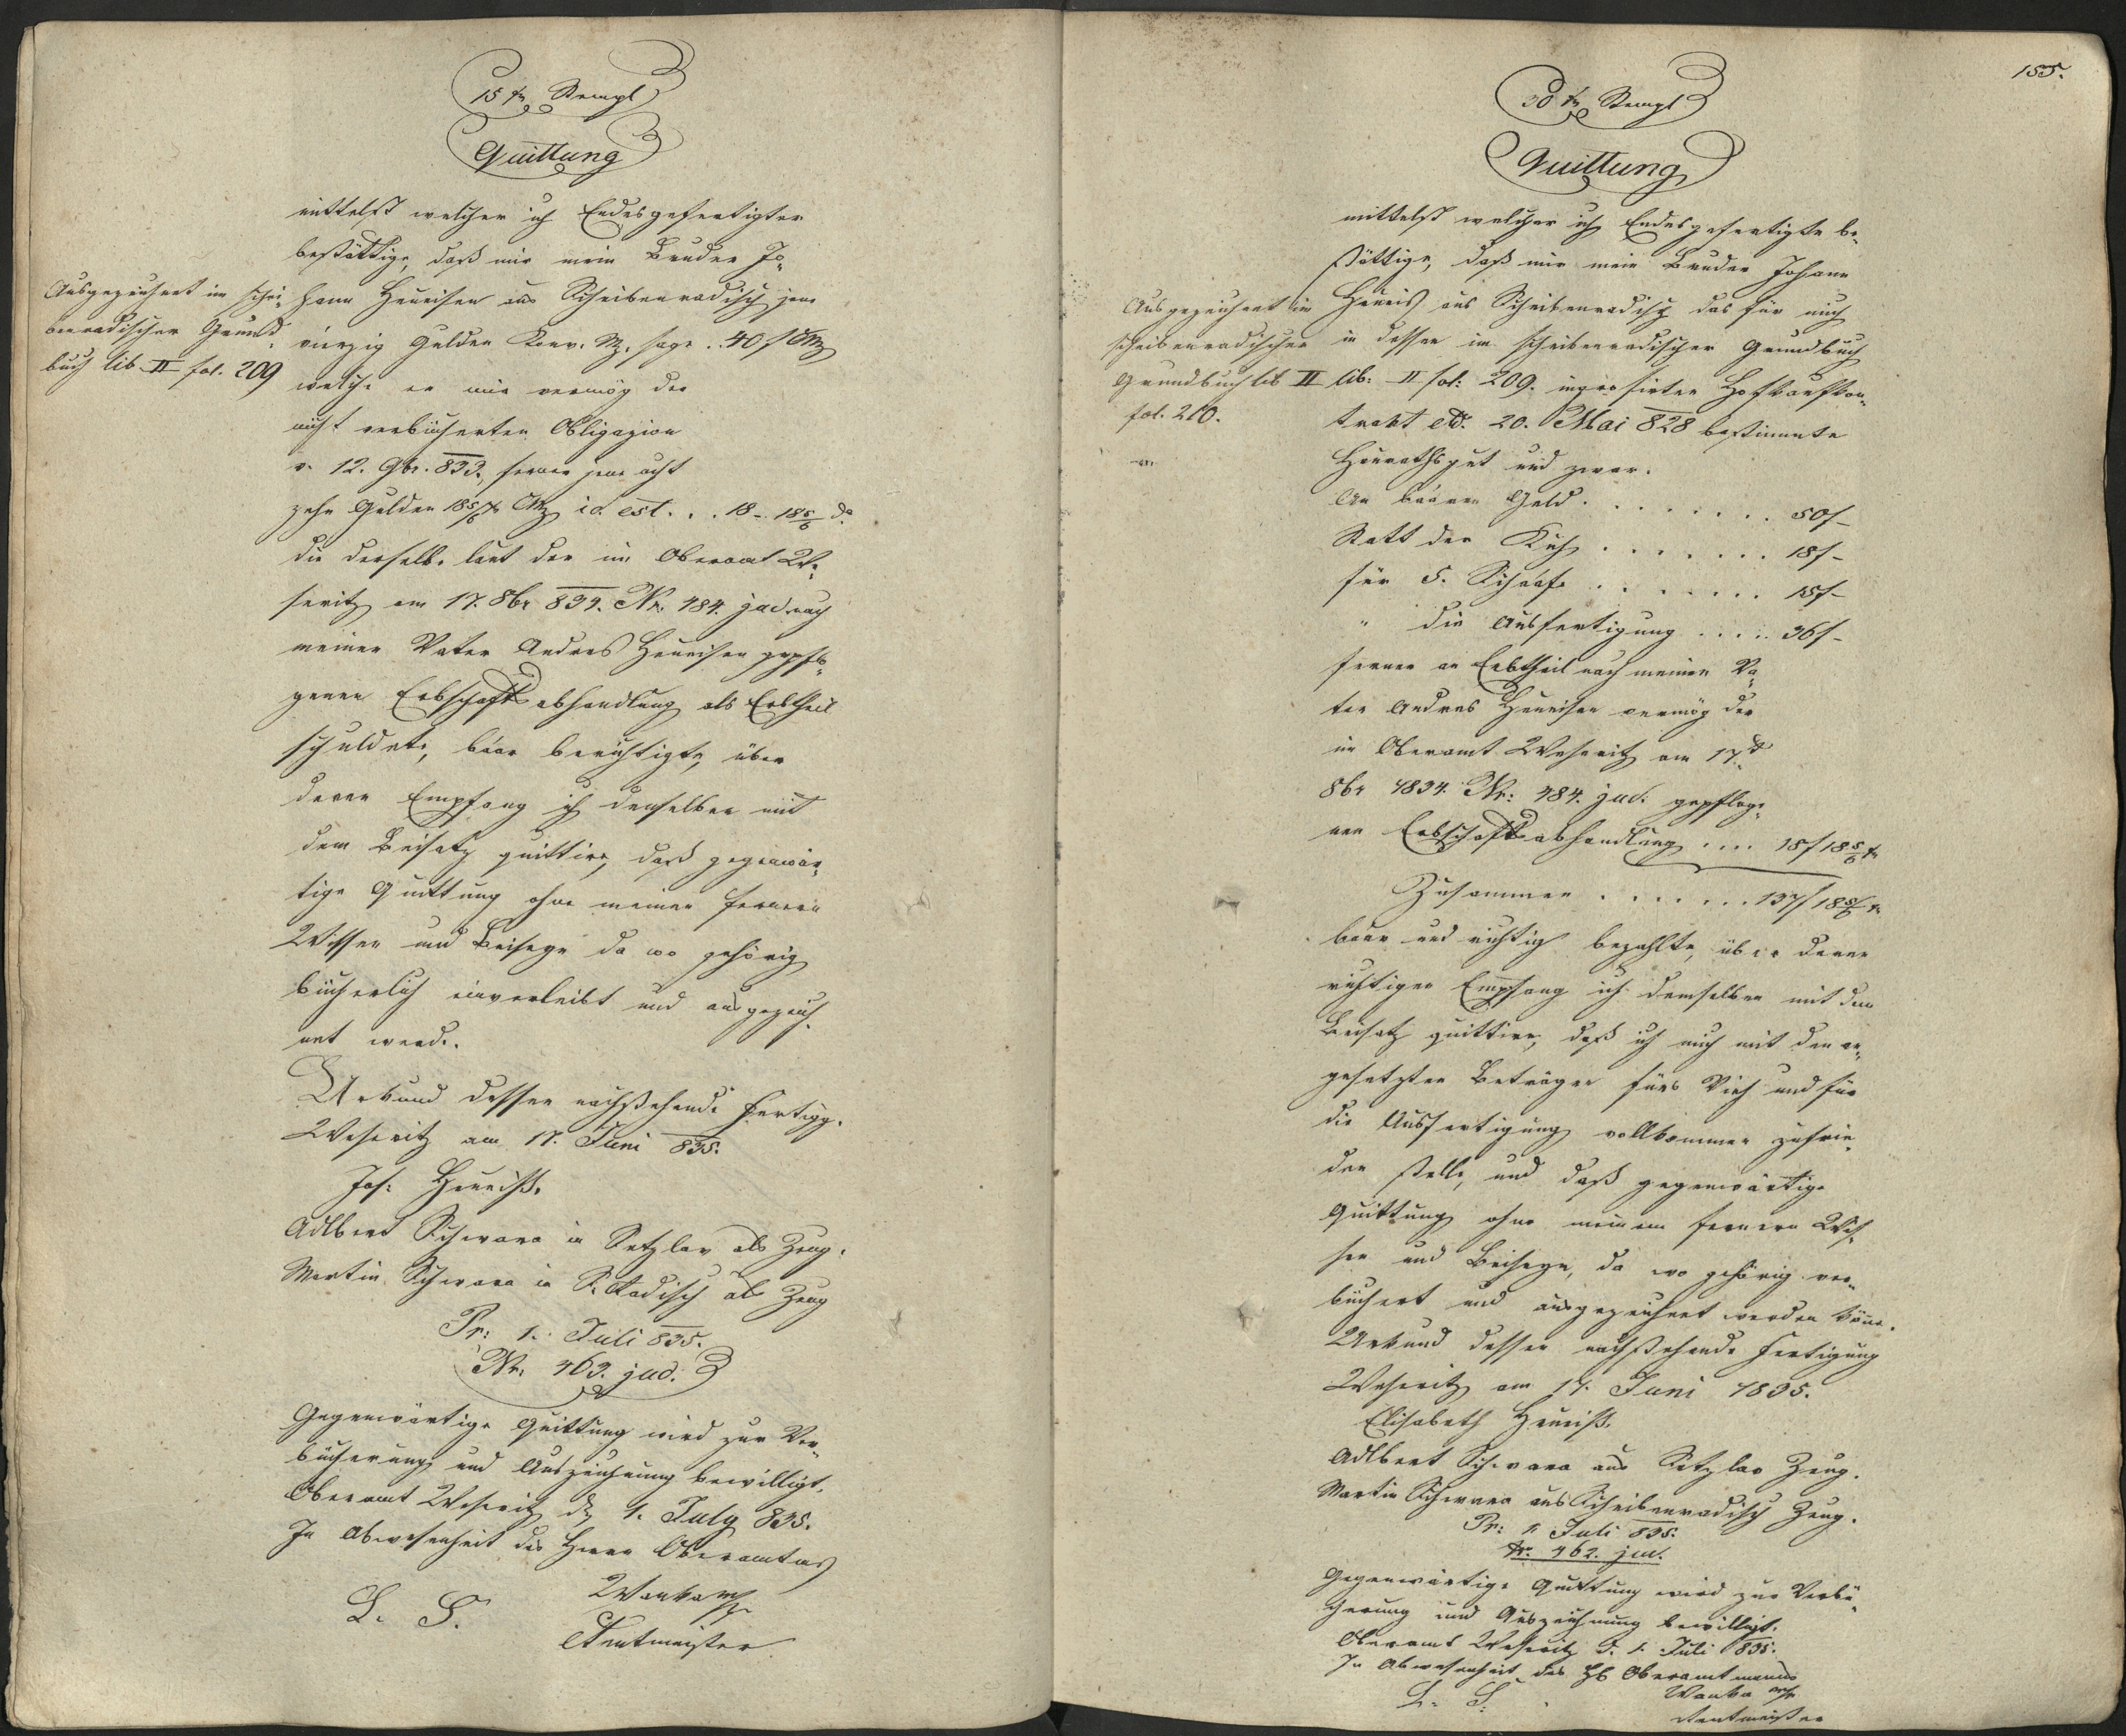 15 xr Stempl
Quittung
mittelst welcher ich Endesgefertigter
bestättige, daß mir mein Bruder Jo-
hann Heueisen aus Scheibenradisch jene
vierzig Gulden Konv. Mz. sage . . 40 f CMz
welche er mir vermög der
nicht verbücherten Obligazion
v. 12. 9br. 833., ferner jene acht
zehn Gulden 18 5/6 xr CMz id est . . . 18 - 18 5/6 do
die derselbe laut der im Oberamt We-
seritz am 17. 8br 834. Nr. 484. jud. nach
meinen Vater Andres Heueisen gepflo-
genen Erbschaftsabhandlung als Erbtheil
schuldete, baar berichtigte, über
deren Empfang ich denselben mit
dem Beisatz quittire, daß gegenwär-
tige Quittung ohne meinen ferneren
Wissen und Beiseyn da wo gehörig
bücherlich einverleibt und ausgezeich-
net werde.
Urkund dessen nachstehende Fertigg.
Weseritz am 17. Juni 835.
Jos: Heueiß.
Adlbert Schwara in Setzlav als Zeug.
Martin Schwara in S. Radisch als Zeug
Pr: 1. Juli 835.
Nr. 463. jud:
Gegenwärtige Quittung wird zur Ver-
bücherung und Auszeichnung bewilligt.
Oberamt Weseritz d. 1. July 835.
In Abwesenheit des Herrn Oberamtms
Wanka
L. S.
Rentmeister
Ausgezeichnet im Schei-
benradischer Grund-
buch lib. II fol. 209
155.
30 xr Stempl
Quittung
mittelst welcher ich Endesgefertigte be-
stättige, daß mir mein Bruder Johann
Heueis aus Scheibenradisch das für mich
in dessen im Scheibenradischer Grundbuch
lib: II fol: 209. ingrosirten Hofkaufkon-
trakt dd. 20. Mai 828 bestimmte
Heurathsgut und zwar.
An baaren Geld . . . . . . . 50 f -
Statt der Kuh . . . . . . . 18 f -
für 5. Schaafe . . . . . . . 15 f -
" die Ausfertigung . . . . . 36 f -
ferner an Erbtheil nach meinen Va-
ter Andres Heueisen vermög der
im Oberamt Weseritz am 17t
8br 1834. Nr: 484. jud: gepfloge-
nen Erbschaftsabhandlung . . . . 18 f 18 5/6 xr
Zusammen . . . . . . 137 f 18 5/6 xr
baar und richtig bezahlte, über deren
richtigen Empfang ich demselben mit dem
Beisatz quittire, daß ich mich mit den an-
gesetzten Beträgen fürs Vieh und für
die Ausfertigung vollkommen zufrie-
den stelle, und daß gegenwärtige
Quittung ohne meinem fernern Wis-
sen und Beiseyn, da wo gehörig ver-
büchert und ausgezeichnet werden könne.
Urkund dessen nachstehende Fertigung
Weseritz am 17. Juni 1835.
Elisabeth Heueiß.
Adlbert Schwara aus Setzlav Zeug.
Martin Schwara aus Scheibenradisch Zeug.
Pr: 1. Juli 835.
Nr. 462. jud.
Gegenwärtige Quittung wird zur Verbü-
cherung und Auszeichnung bewilligt.
Oberamt Weseritz d. 1. Juli 835.
In Abwesenheit des H Oberamtmanns
Wanka
L. S.
Rentmeister
Ausgezeichnet im
Scheibenradischer
Grundbuch lib II
fol. 210.